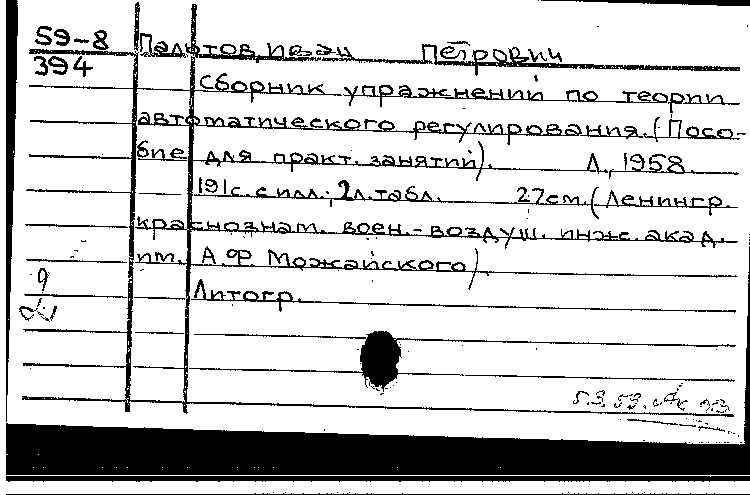 59-8
394
Пальтов, Иван Петрович
Сборник упражнений по теории
автоматического регулирования. (Посо-
бие для практ. занятий). Л., 1958.
191с. с илл.; 2л. табл. 27см. (Ленингр.
краснознам. воен.-воздуш. инж. акад.
им. А.Ф. Можайского).
Литогр.
9